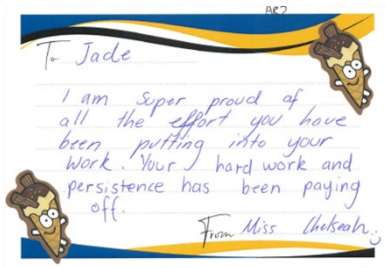 AR7
To Jade
I am super proud of
all the effort you have
been putting into your
work. Your hard work and
persistence has been paying
off.
From Miss Chelseah